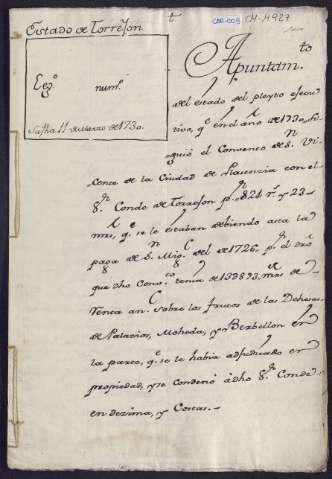 Estado de Torrejon
CM-4927
Leg.º num.º
Safra 11 de Marzo de 1730.
Apuntam.to
del estado del pleyto execu
tivo, q.e en el año de 1730, si
guió el Convento de S.n Vi
cente de la Ciudad de Plasencia con el
S.r Conde de Torrejon p.r 824 r.s y 23
mrs, q.e se le estaban debiendo asta la
paga de S.n Mig.l del de 1726, p.r el dro
que dho Conv.to tenia de 133893 mrs de
renta an.l sobre los frutos de las Dehesas
de Palacios, Moheda, y Berbellon en
la parte, q.e se le habia adjudicado en
propiedad, y se condenó a dho S.r Conde
en dezima, y Costas.